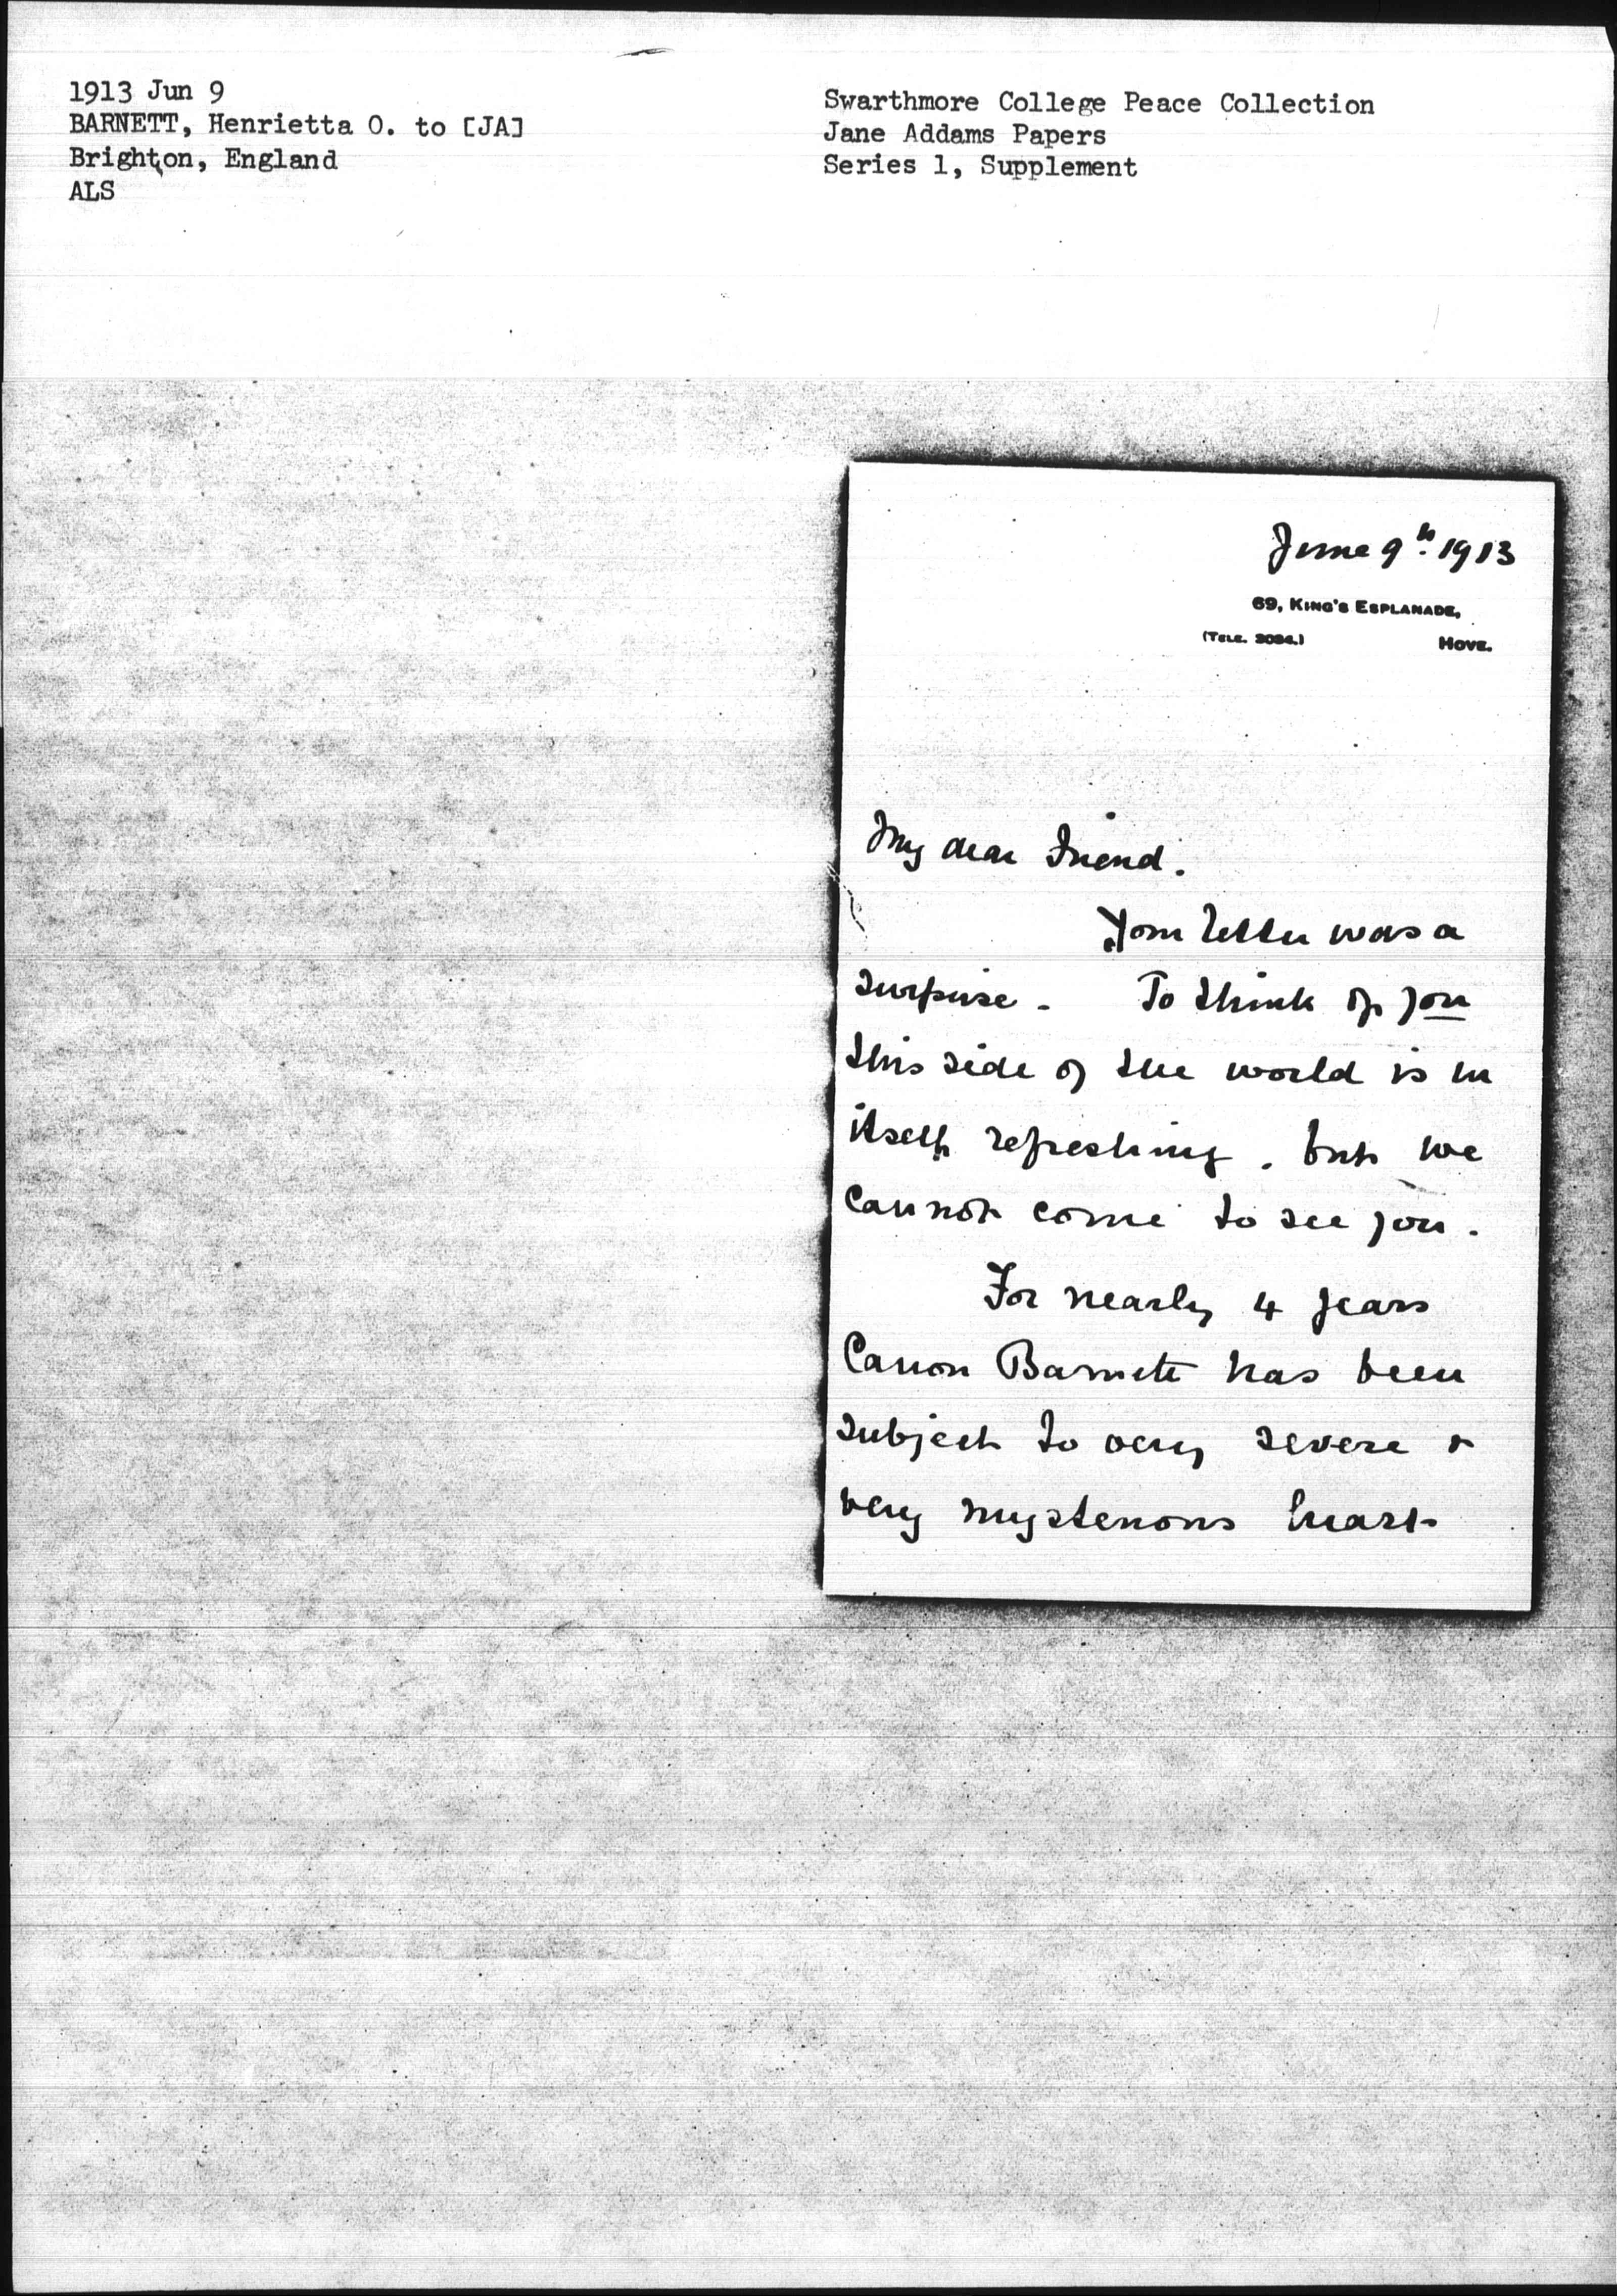 1913 Jun 9
BARNETT, Henrietta O. to [JA]
Brighton, England
ALS
Swarthmore College Peace Collection
Jane Addams Papers
Series 1, Supplement
June 9th 1913
69, King's Esplanade,
(Tele. 3084.) Hove.
My dear Friend.
Your letter was a
surprise - To think of you
this side of the world is in
itself refreshing. but we
cannot come to see you.
For nearly 4 years
Canon Barnett has been
subject to very severe &
very mysterious heart